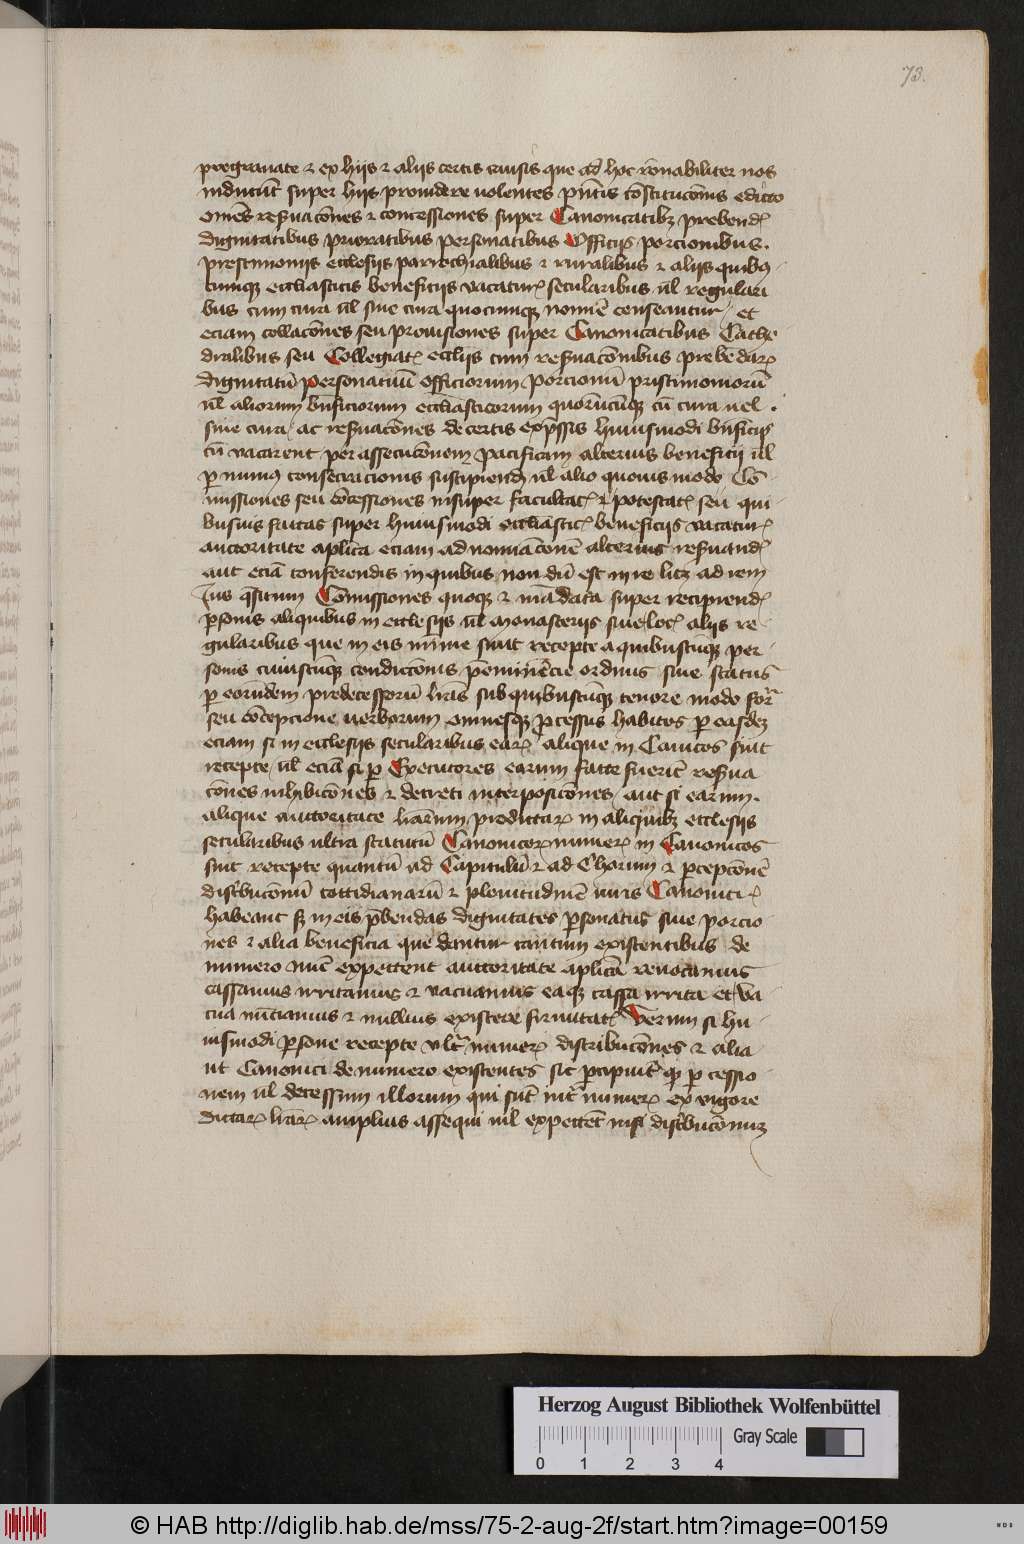 73.
pregrauate & ex hiis & aliis certis causis que ad hoc rōnabiliter nos
inducūt super hiis prouidere uolentes pn̄tis cōstitucōnis edicto
omēs reseruacōnes & concessiones super Canonicatibꝫ prebend
dignitatibus prioratibus personatibus Officijs porcionibus.
prestimoniis ecclesijs parrochialibus & ruralibus & aliis quibus
cunqꝫ ecclīasticis beneficijs vacatur secularibus ul regulari
bus cum cura ul sine cura quocunqꝫ nomīe censeantur et
eciam collacōnes seu prouisiones super Canonicatibus Cathe
dralibus seu Collegiat ecclijs cum reseruacōnibus prebēdar
dignitatū personatuū officiorum porcionū prestimoniorū
ul aliorum bn̄ficiorum ecclīasticorum quorūcūqꝫ cū cura uel
sine cura ac reseruacōnes de certis exp̄ssis huiusmodi bn̄ficijs
cū vacarent per assecucōnem pacificam alterius beneficii ul
ꝑ munus consecracionis suscipiend ul alio quouis modo Cō
missiones seu cōcessiones insuper facultat & potestat seu qui
busuis factas super huiusmodi ecclīastic beneficijs vacatur
auctoritate aplīca eciam ad nominacōnē alterius reseruand
aut eciā conferendis in quibus non dū est in re licꝫ ad rem
Ius q̄situm Cōmissiones quoqꝫ & mādata super recipiend
ꝑsonis aliquibus in ecclesijs ul monasterijs siue loc aliis re
gularibus que in eis mīme sunt recepte a quibuscūqꝫ per
sonis cuiuscūqꝫ condicōnis p̄eminēcie ordinis siue status
ꝑ eorundem predecessorū lr̄as sub quibuscūqꝫ tenore modo for
seu cōcepcione uerborum omnesqꝫ ꝓcessus habitos ꝑ easdeꝫ
eciam si in ecclesijs secularibus ear alique in Canicos sint
recepte ul eciā si ꝑ Executores earum facte fuerīt reserua
cōnes inhibicōnes & decreti interposicōnes aut si earum.
alique auctoritate lr̄arum predictar in aliquibꝫ ecclesijs
secularibus ultra statutū Canonicor numer in Canonicos
sint recepte quantū ad Capitulū & ad Chorum & ꝑcepcōnē
distbucōnū cottidianarū & plenitudinē iuris Canonici
habeant sꝫ in eis p̄bendas dignitates ꝑsonatus siue porcio
nes & alia beneficia que dantur tantum existentibus de
numero nūc expectent auctoritate aplīca reuocamus
cassamus irritamus & vacuamus eaqꝫ cassa irrita et va
cua nūciamus & nullius existere firmitat Verum si hu
iusmodi ꝑsone recepte vlt numer distribucōnes & alia
ut Canonici de numero existentes sic ꝑcipiūt qꝫ ꝑ cessio
nem ul decessum illorum qui sūt inf numer ex vigore
dictar lr̄ar amplius assequi nil expectēt nisi distbucōnuꝫ
Herzog August Bibliothek Wolfenbüttel
Gray Scale
0 1 2 3 4
© HAB http://diglib.hab.de/mss/75-2-aug-2f/start.htm?image=00159